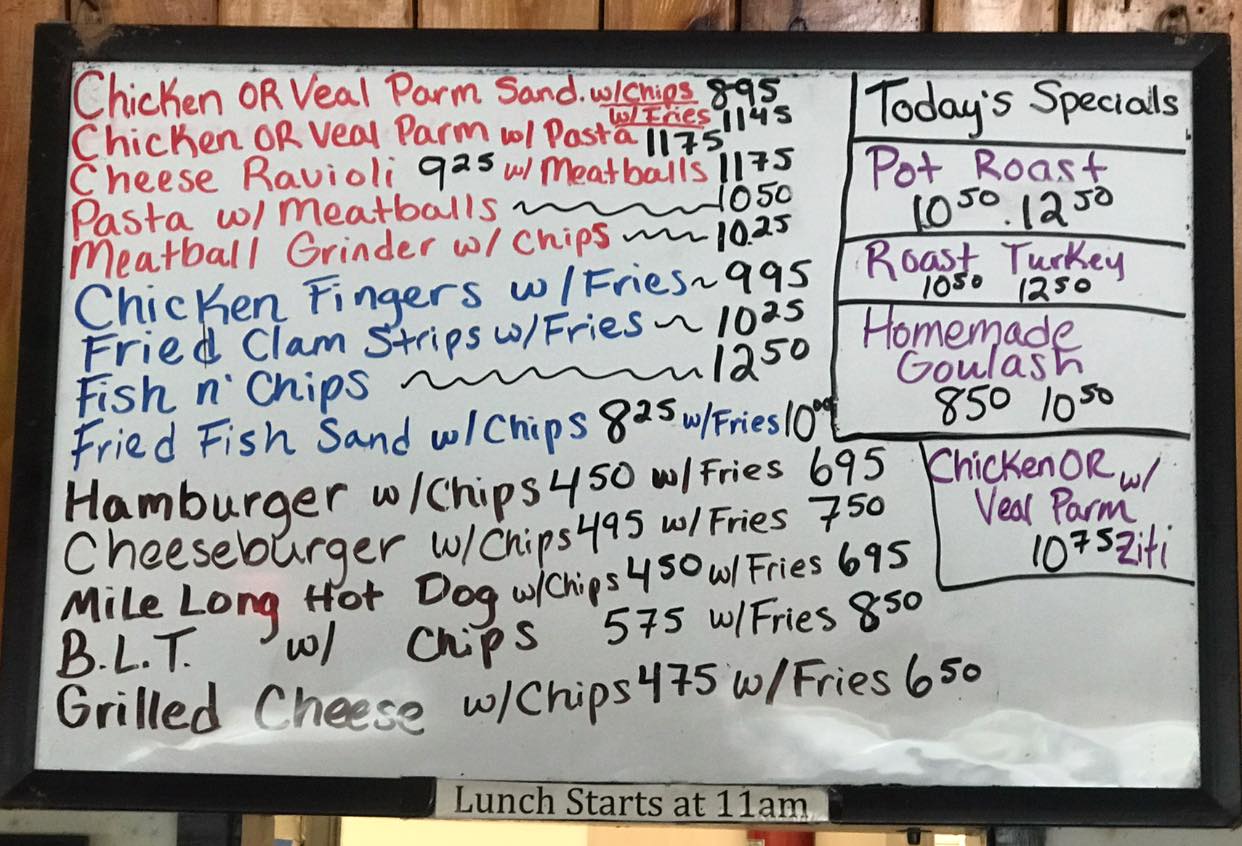 Chicken OR Veal Parm Sand. w/Chips 895
w/Fries 1145
Chicken OR Veal Parm w/ Pasta 1175
Cheese Ravioli 925 w/ Meatballs 1175
Pasta w/ Meatballs 1050
Meatball Grinder w/ chips 10.25
Chicken Fingers w/Fries 995
Fried Clam Strips w/Fries 1025
Fish n' Chips 1250
Fried Fish Sand w/Chips 825 w/Fries 1000
Hamburger w/Chips 450 w/ Fries 695
Cheeseburger w/Chips 495 w/ Fries 750
Mile Long Hot Dog w/Chips 450 w/ Fries 695
B.L.T. w/ Chips 575 w/Fries 850
Grilled Cheese w/Chips 475 w/Fries 650
Today's Specials
Pot Roast
1050 . 1250
Roast Turkey
1050 1250
Homemade
Goulash
850 1050
Chicken OR w/
Veal Parm
1075 Ziti
Lunch Starts at 11am